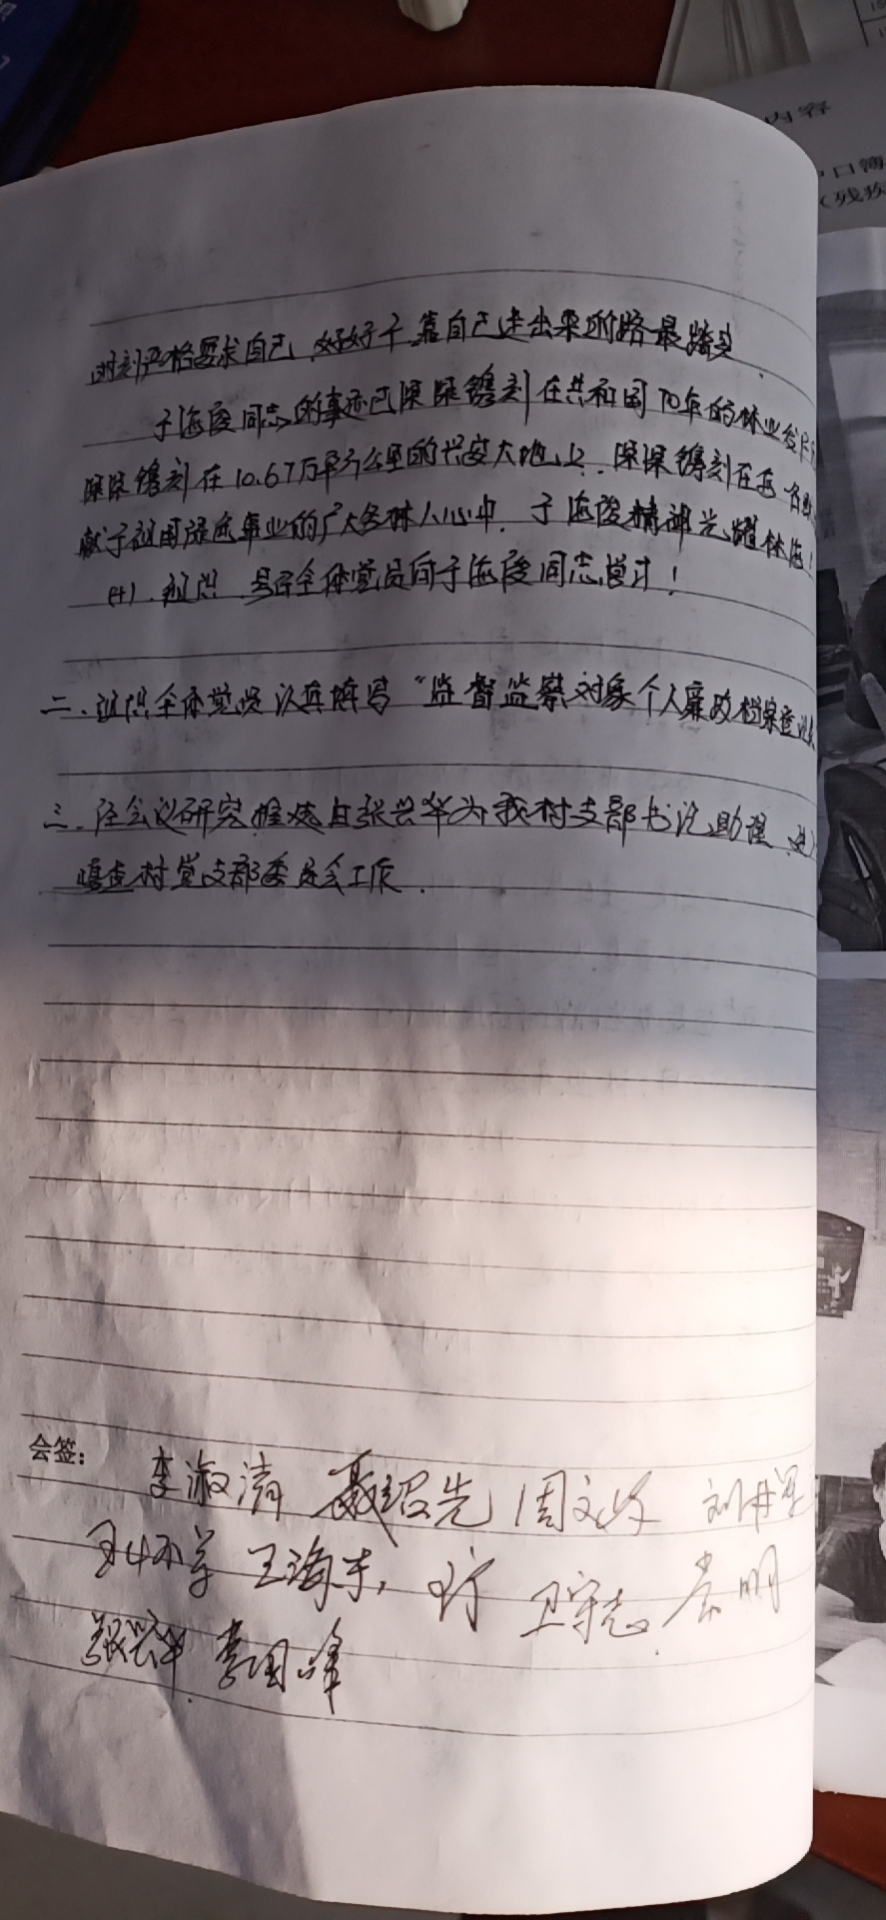 时刻严格要求自己，好好干，靠自己走出来的路最踏实
于海俊同志的事迹已深深镌刻在共和国70年的林业发
深深镌刻在10.67万平方公里的兴安大地上．深深镌刻在每一名
献于祖国绿色事业的广大务林人心中．于海俊精神光耀林海！
(4)．号召全体党员向于海俊同志学习！
二、全体党员认真填写“监督监察对象个人廉政档案
三、经会议研究推选由张兴华为我村支部书记助理，
嘎查村党支部委员会工作．
会签：
李淑清 聂绍先 周文
王海东， 卫守志 明
张兴华 李国峰
内容
户口簿
（残疾